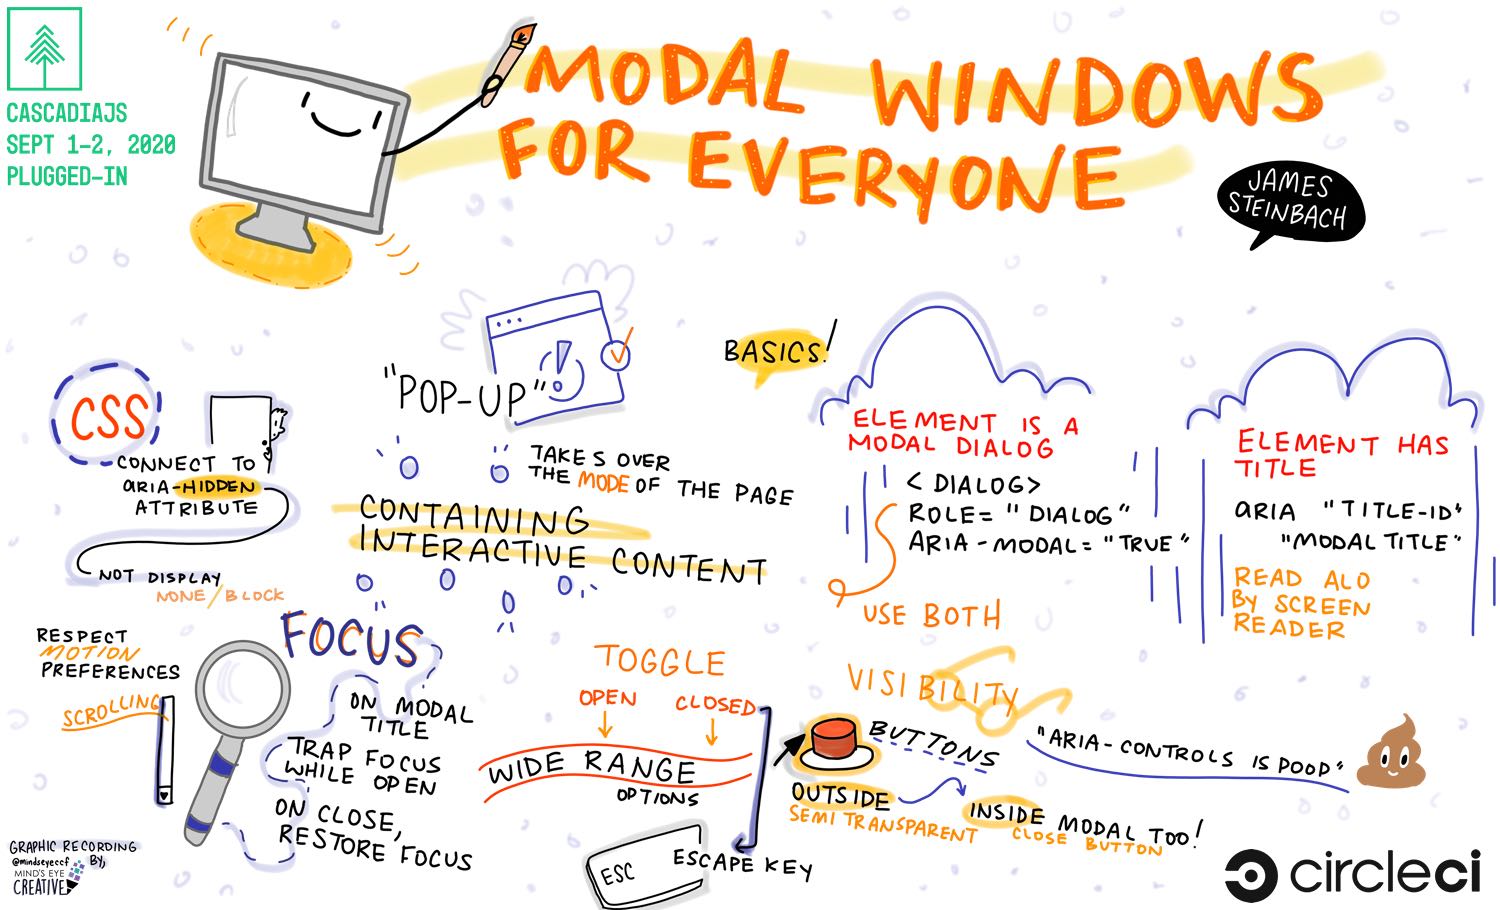 CASCADIAJS
SEPT 1-2, 2020
PLUGGED-IN
MODAL WINDOWS
FOR EVERYONE
JAMES
STEINBACH
CSS
CONNECT TO
aRIA-HIDDEN
ATTRIBUTE
NOT DISPLAY
NONE/BLOCK
"POP-UP"
TAKES OVER
THE MODE OF THE PAGE
CONTAINING
INTERACTIVE CONTENT
BASICS!
ELEMENT IS A
MODAL DIALOG
<DIALOG>
ROLE="DIALOG"
ARIA-MODAL="TRUE"
USE BOTH
ELEMENT HAS
TITLE
aRIA "TITLE-ID"
"MODAL TITLE"
READ ALO
BY SCREEN
READER
RESPECT
MOTION
PREFERENCES
SCROLLING
FOCUS
ON MODAL
TITLE
TRAP FOCUS
WHILE OPEN
ON CLOSE,
RESTORE FOCUS
TOGGLE
OPEN CLOSED
WIDE RANGE
OPTIONS
ESC
ESCAPE KEY
VISIBILITY
BUTTONS
"ARIA-CONTROLS IS POOP"
OUTSIDE
SEMI TRANSPARENT
INSIDE MODAL TOO!
CLOSE BUTTON
GRAPHIC RECORDING
BY,
@mindseyeccf
MIND'S EYE
CREATIVE
circleci